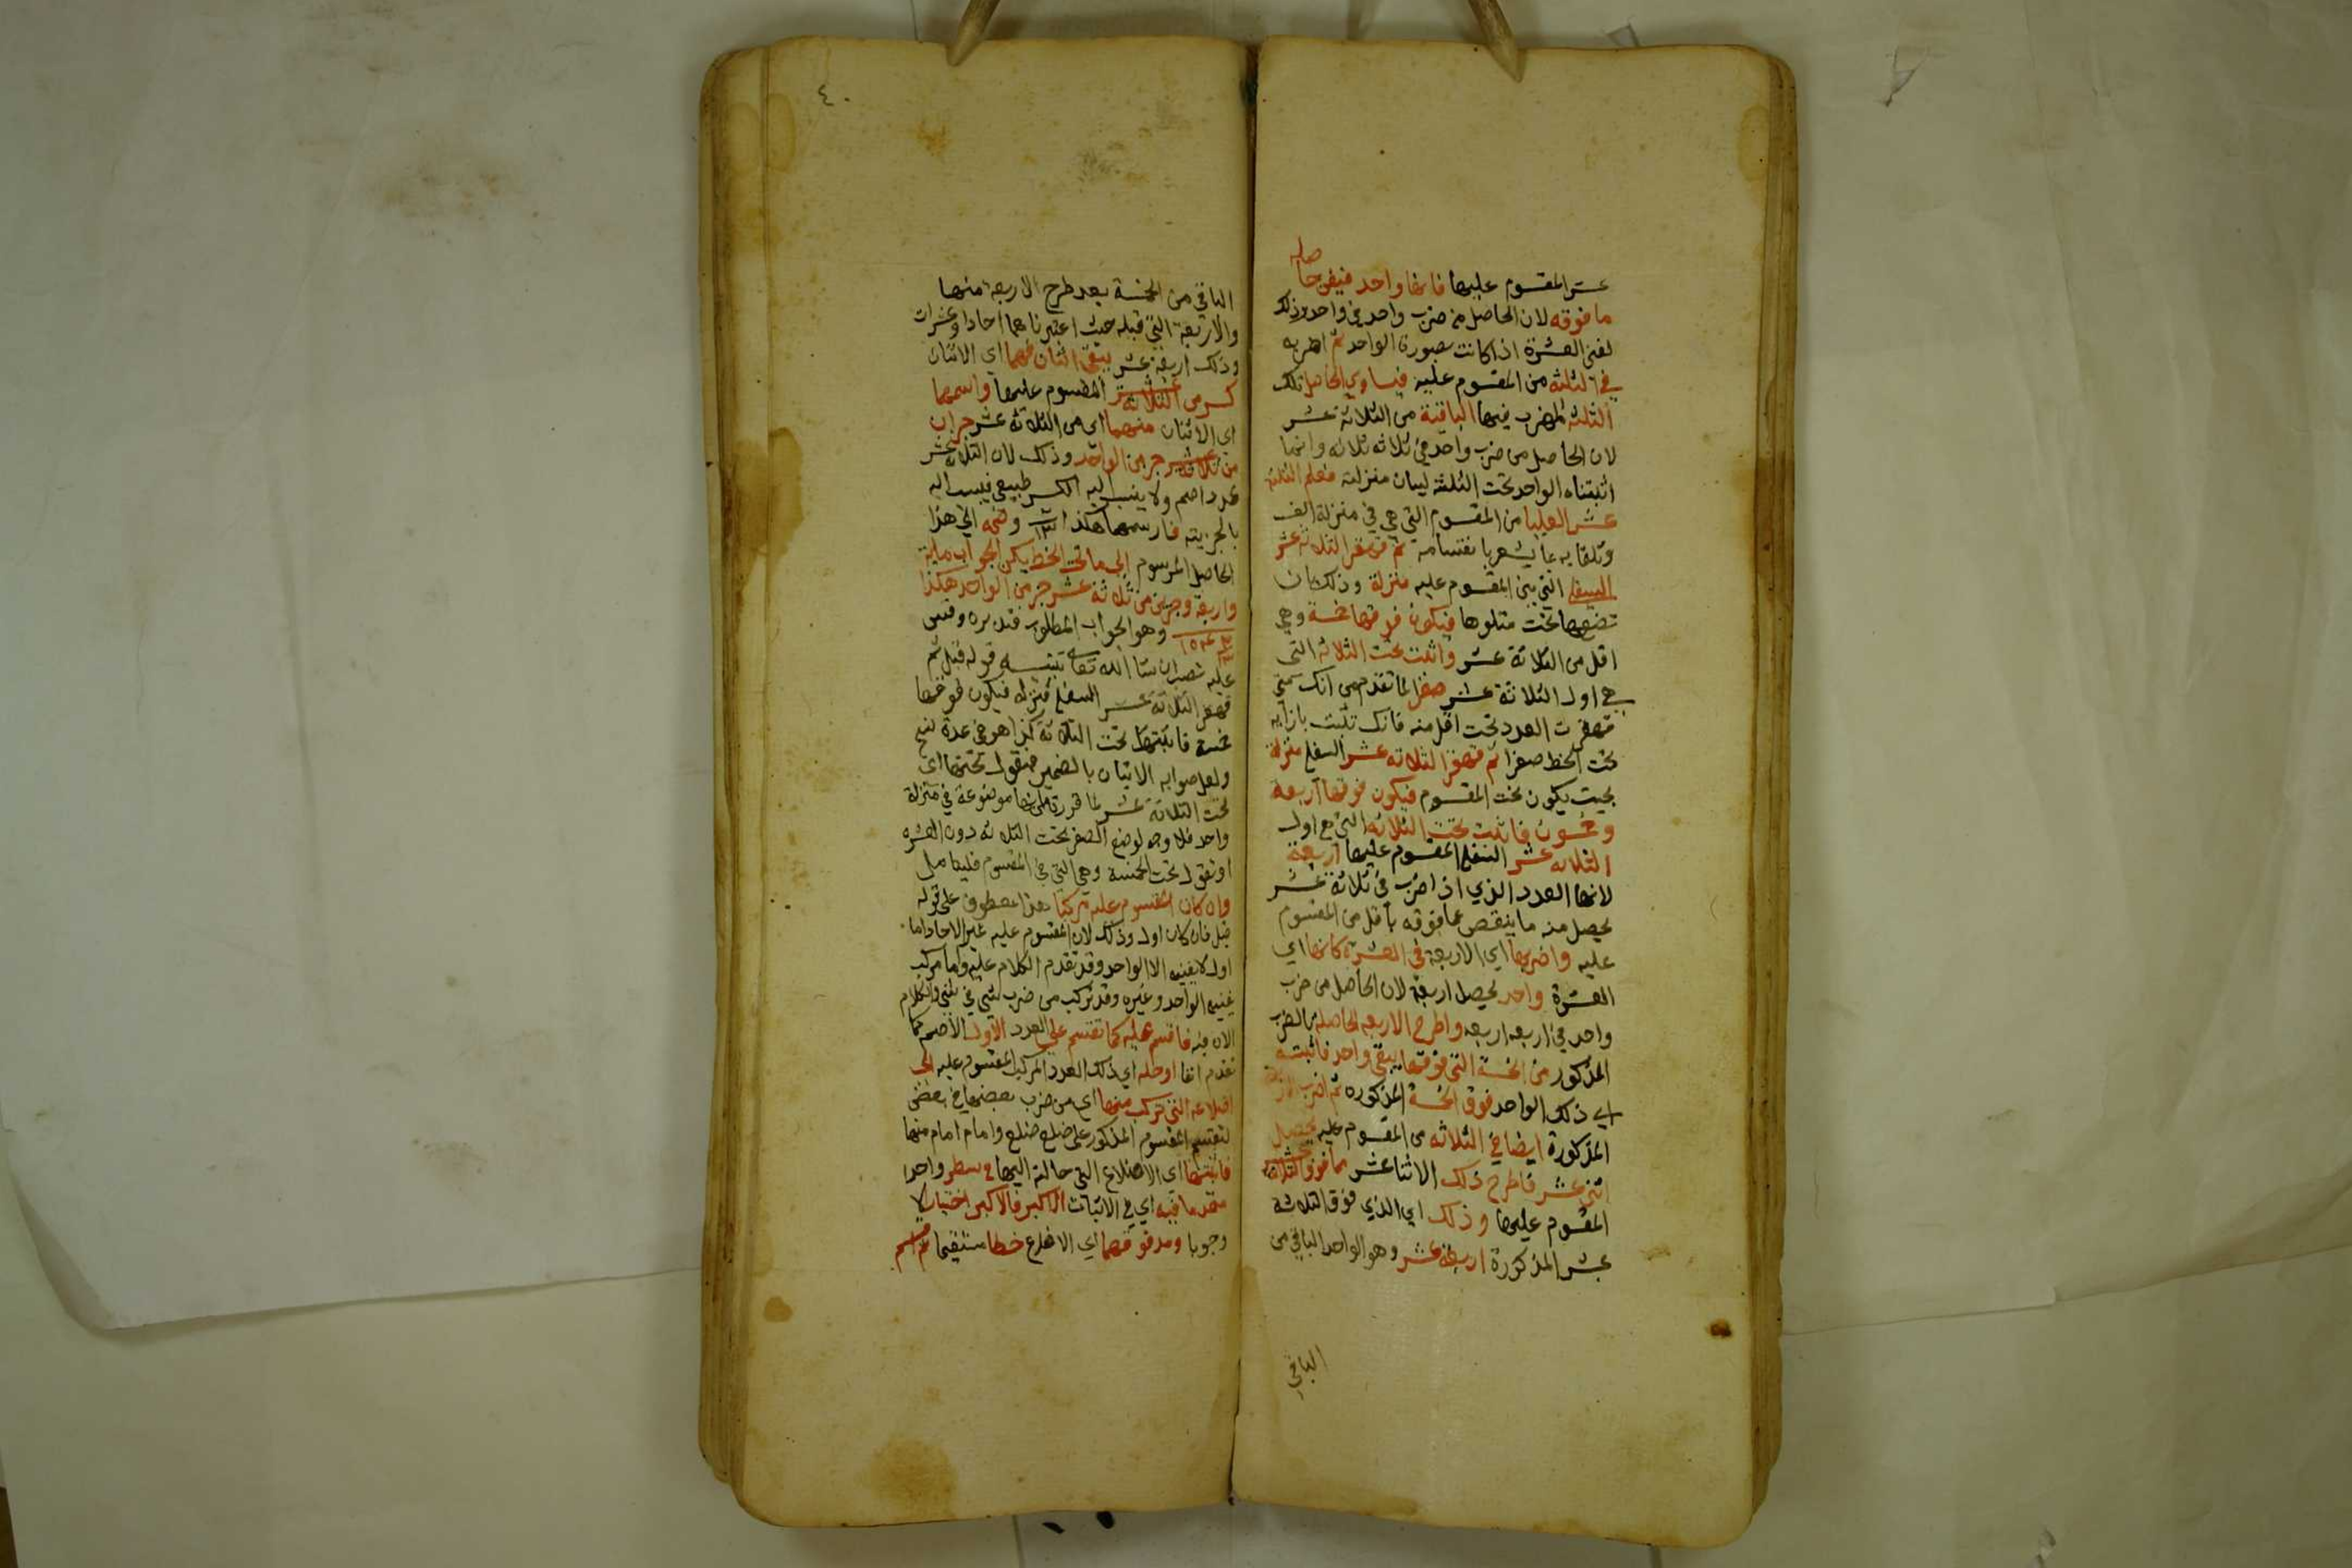 صله
عشر المقسوم عليها فانها واحد فيفن حا
ما فوقه لان الحاصل من ضرب واحد في واحد وذلك
لفن العشرة اذا كانت بصورة الواحد ثم اضربه
في الثلثة من المقسوم عليه فيساوي الحاصل تلك
الثلثة المضرب فيها الباقية من الثلاثة عشر
لان الحاصل من ضرب واحد في ثلاثه ثلاثه وانما
اثبتناه الواحد تحت الثلثة لبيان منزلته فعلم الثلثة
عشر العليا من المقسوم التي هي في منزلة الف
وتلقا به ما يشعر با نقسامه ثم قهقر الثلاثة عشر
السفلى التي بين المقسوم عليه منزلة وذلك بان
تضعها تحت متلوها فيكون فوقها خمسة وهي
اقل من الثلاثة عشر واثبت تحت الثلاثه التي
هي اول الثلاثة عشر صفرا لما تقدم من انك متى
قهقرت العدد تحت اقل منه فانك تثبت بازايه
تحت الخط صفرا ثم قهقر الثلاثه عشر السفلى منزلة
بحيث يكون تحت المقسوم فيكون فوقها اربعة
وخمسون فاثبت تحت الثلاثه التي هي اول
الثلاثه عشر السفلى المقسوم عليها اربعة
لانها العدد الذي اذا ضرب في ثلاثة عشر
يحصل منه ما ينقص عما فوقه باقل من المقسوم
عليه واضربها اي الاربعة في العشرة كانها اي
العشرة واحد يحصل اربعة لان الحاصل من ضرب
واحد في اربعه اربعه واطرح الاربعه الحاصله بالضرب
المذكور من الخمسة التي فوقها يبقى واحد فاثبته
اي ذلك الواحد فوق الخمسة المذكوره ثم اضرب الاربعة
المذكورة ايضا في الثلاثه من المقسوم عليه يحصل
اثني عشر فاطرح ذلك الاثنا عشر مما فوق الثلاثة
المقسوم عليها وذلك اي الذي فوق الثلاثة
عشر المذكورة اربعة عشر وهو الواحد الباقي من
الباقي
٤٠
الباقي من الخمسة بعد طرح الاربعة منها
والاربعة التي قبله حيث اعتبرناهما احادا وعشرات
وذلك اربعة عشر يبقى اثنان فهما اي الاثنان
كسر من الثلاثة عشر المقسوم عليها واسمهما
اي الاثنان منهما اي من الثلاثة عشر جزان
من ثلاثة عشر جزء من الواحد وذلك لان الثلاثة عشر
عدد اصم ولا ينسب اليه الكسر طبيعي فينسب اليه
بالجزيته فارسمها هكذا ٢/١٣ وضمه الى هذا
الحاصل المرسوم الى ما تحت الخط يكن الجواب ماية
واربعة وجزئين من ثلاثة عشر جزء من الواحد هكذا
وهو الجواب المطلوب فتدبره وقس
عليه تصب ان شا الله تعالى تنبيه قوله قبل ثم
قهقر الثلاثة عشر السفلى منزله فيكون فوقها
خمسة فاثبتها تحت الثلاثة كذا هو في عدة نسخ
ولعل صوابه الاتيان بالضمير فنقول تحتها اي
تحت الثلاثة عشر لما قررته من انها موضوعة في منزلة
واحد فلا وجه لوضع الصفر تحت الثلاثه دون العشره
او تقول تحت الخمسة وهي التي في المقسوم فليتامل
وان كان المقسوم عليه مركبا هذا معطوف على قوله
قبل فان كان اول وذلك لان المقسوم عليه غير الاحاد اما
اول لا يفنيه الا الواحد وقد تقدم الكلام عليه واما مركب
يفنيه الواحد وغيره وقد تركب من ضرب شي في شي والكلام
الان فيه فاقسم عليه كما تقسم على العدد الاول الاصم كما
تقدم انفا او حله اي ذلك العدد المركب المقسوم عليه الى
اضلاعه التي تركب منها اي من ضرب بعضها في بعض
لتقسم المقسوم المذكور على ضلع ضلع وامام امام منها
فاثبتها اي الاضلاع التي حالته اليها في سطر واحد
مقدما فيه اي في الاثبات الاكبر فالاكبر اختيارا لا
وجوبا ومد فوقهما اي الاضلاع خطا مستقيما ثم اقسم